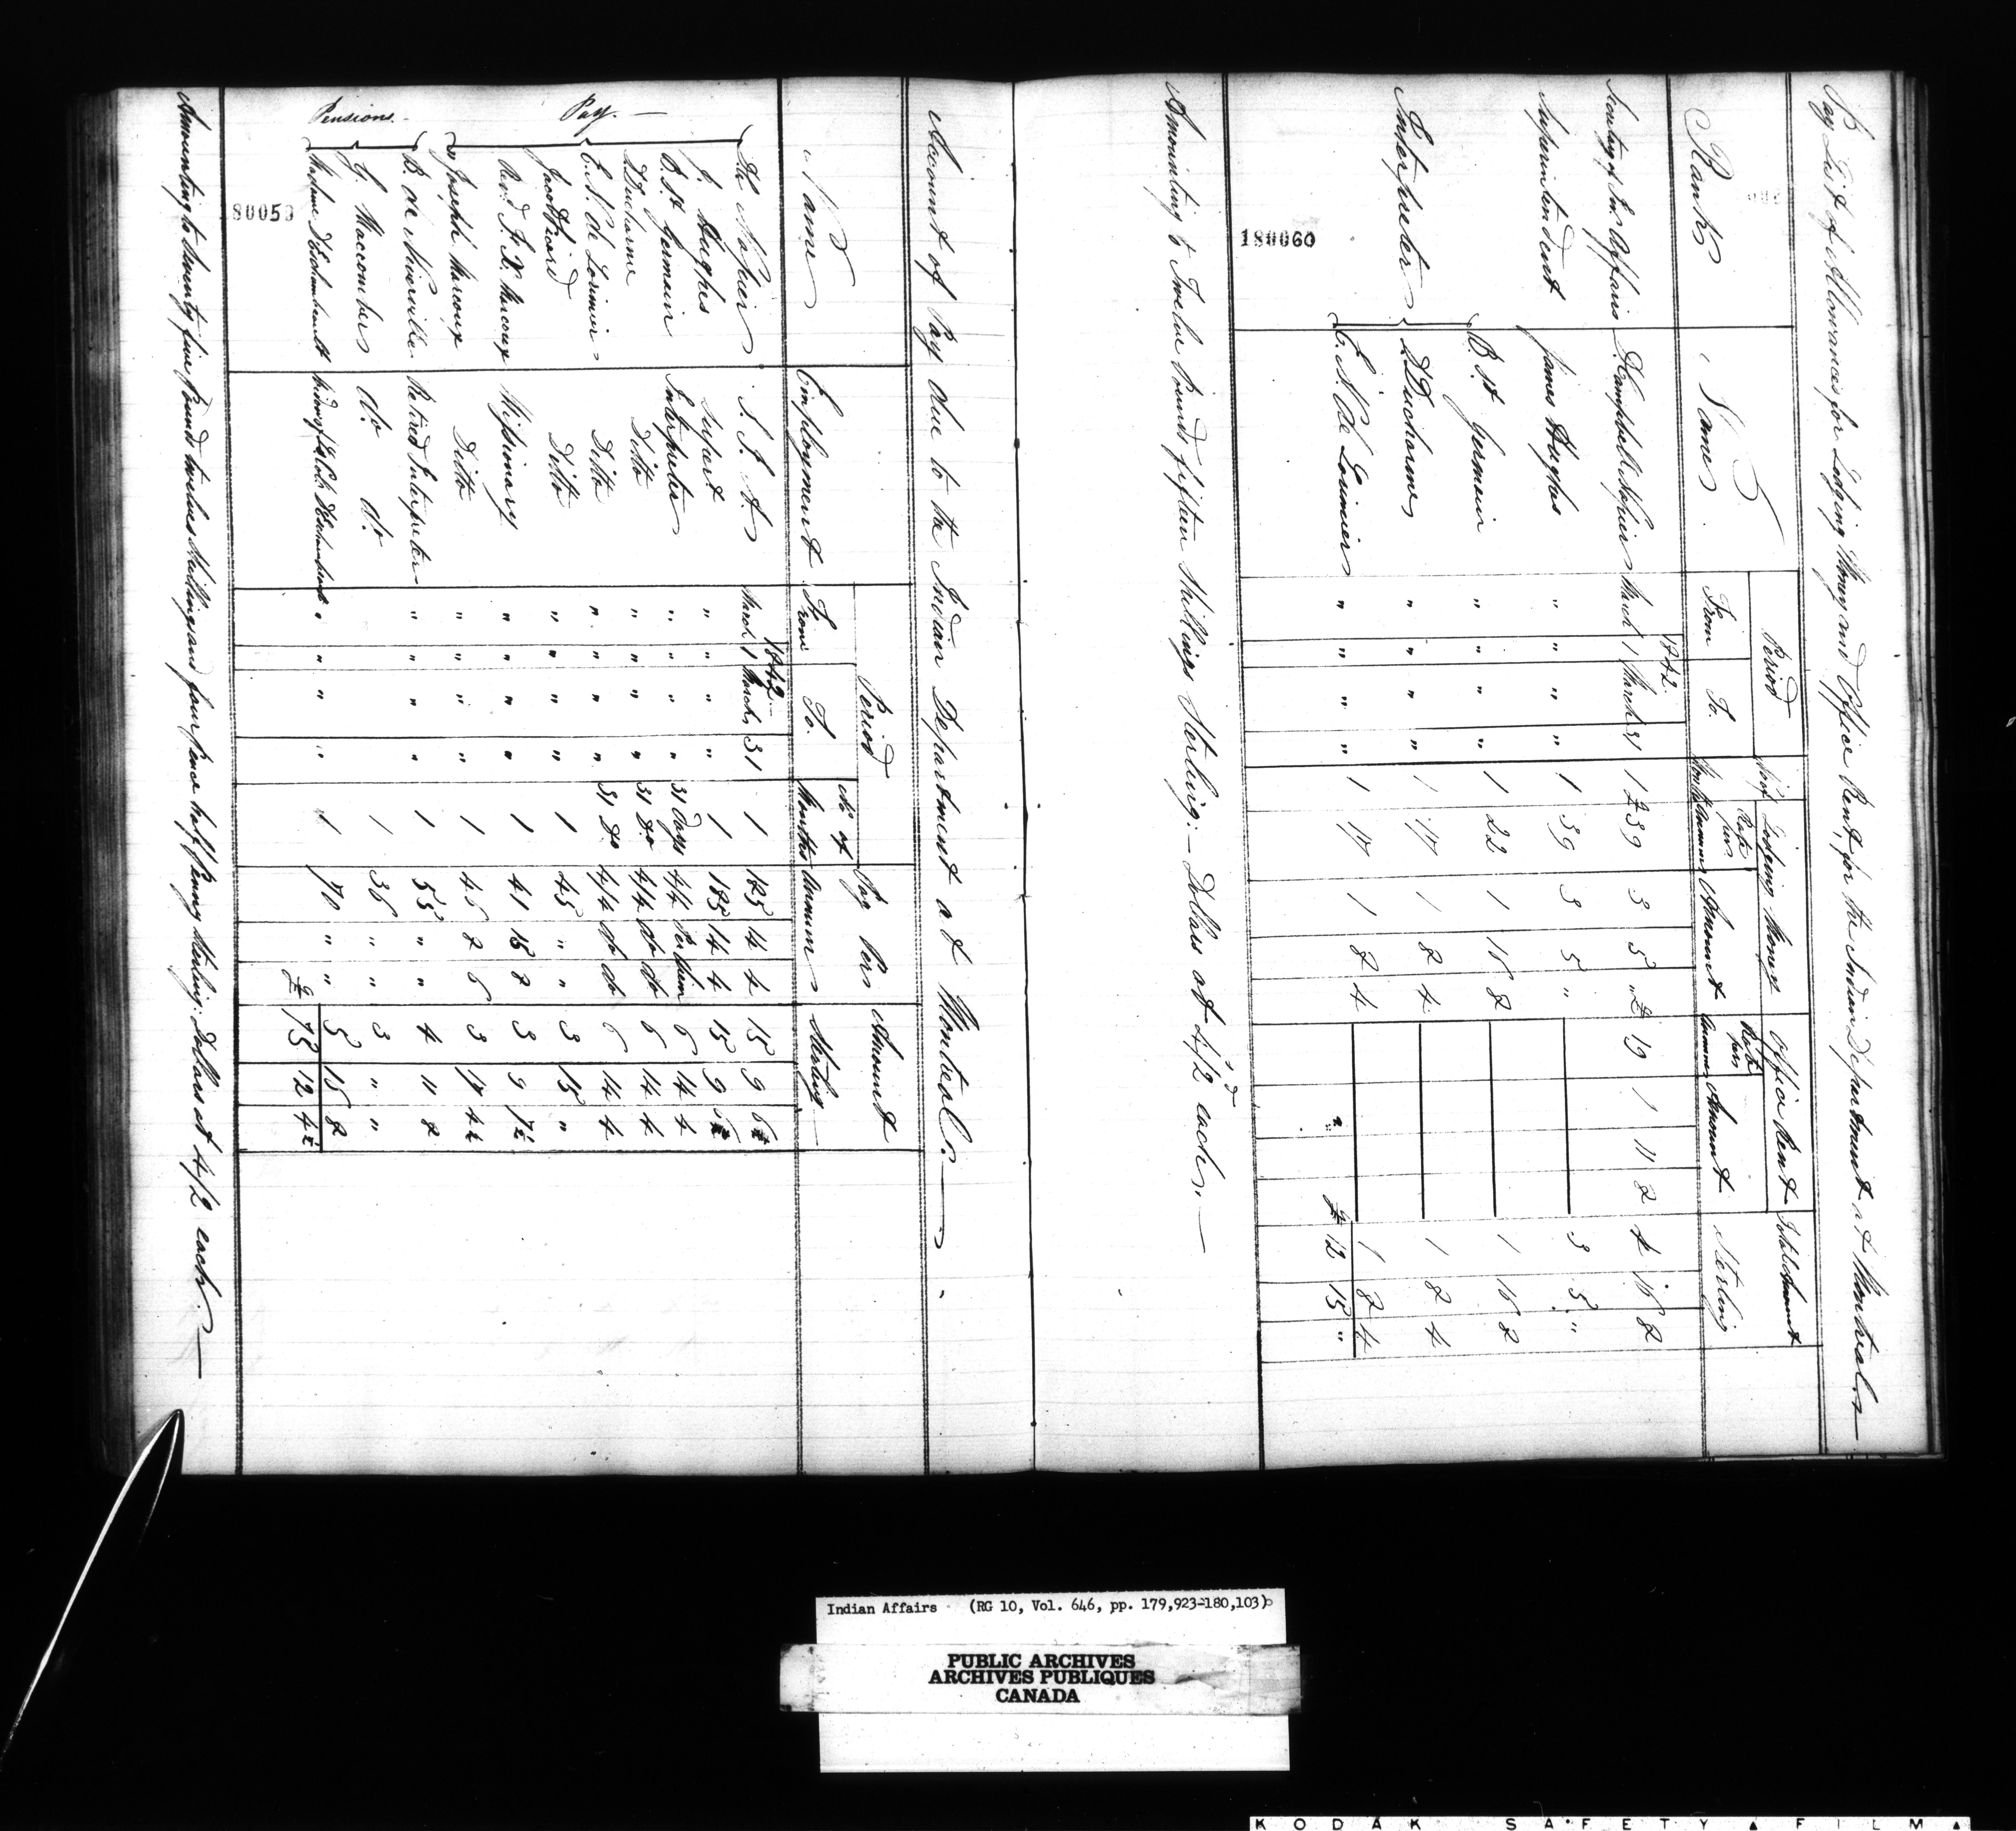 Pay List of Allowances for Lodging Money and Office Rent for the Indian Department at Montreal
Rank Name Period No. of Months Lodging Money Office Rent Total Amount Sterling
From To. Rate per Annum Amount Rate per Annum Amount
1842.
Secretary of In. Affairs D. Campbell Napier March 1 March 31 1 £39 3 5 " £19 1 11 8 4 16 8
Superintendent James Hughes " " " " 1 39 3 5 " 3 5 "
Interpreters B. St Germain " " " " 1 22 1 16 8 1 16 8
D Ducharme " " " " 1 17 1 8 4 1 8 4
C. N. De Lorimier " " " " 1 17 1 8 4 1 8 4
£ 12 15 "
Amounting to Twelve Pounds fifteen Shillings Sterling:— Dollars at 4s/2d each.—
180060
Account of Pay due to the Indian Department at Montreal.—
Name Employment Period No of Months Pay Per Annum Amount Sterling
From To.
1842
Pay.—
Napier S. I. A. March 1 March 31 1 185 14 4 15 9 6¼
J. Hughes Supert " " " " 1 185 14 4 15 9 6¼
B. St Germain Interpreter " " " " 31 Days 4/4 Per diem 6 14 4
D Ducharme Ditto " " " " 31 do 4/4 do do 6 14 4
C. N. de Lorimier Ditto " " " " 31 do 4/4 do do 6 14 4
Jacob Picard Ditto " " " " 1 45 " " 3 15 "
Revd. F. X. Marcoux Missionary " " " " 1 41 15 8 3 9 7½
" Joseph Marcoux Ditto " " " " 1 46 8 6 3 17 4½
Pensions.—
B. de Niverville Retired Interpreter " " " " 1 55 " " 4 11 8
J. Maccomber do do 1 36 " " 3 " "
Madame D'Eschambault Widow of Lt Col. D'Eschambault " " " " 1 70 " " 5 16 8
£ 75 12 4½
Amounting to Seventy five Pounds twelve Shillings and four pence half penny Sterling: Dollars at 4/2 each.—
80059
Indian Affairs (RG 10, Vol. 646, pp. 179,923-180,103)
PUBLIC ARCHIVES
ARCHIVES PUBLIQUES
CANADA
KODAK SAFETY FILM